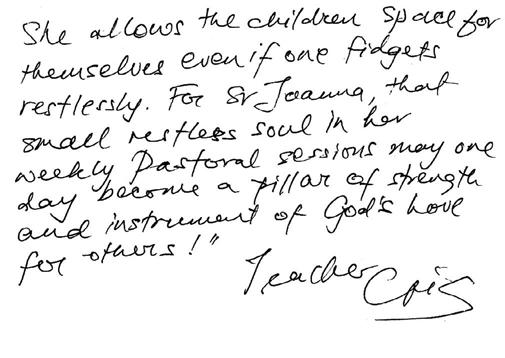 She allows the children space for
themselves even if one fidgets
restlessly. For Sr Joanna, that
small restless soul in her
weekly Pastoral sessions may one
day become a pillar of strength
and instrument of God's Love
for others!"
Teacher Cris